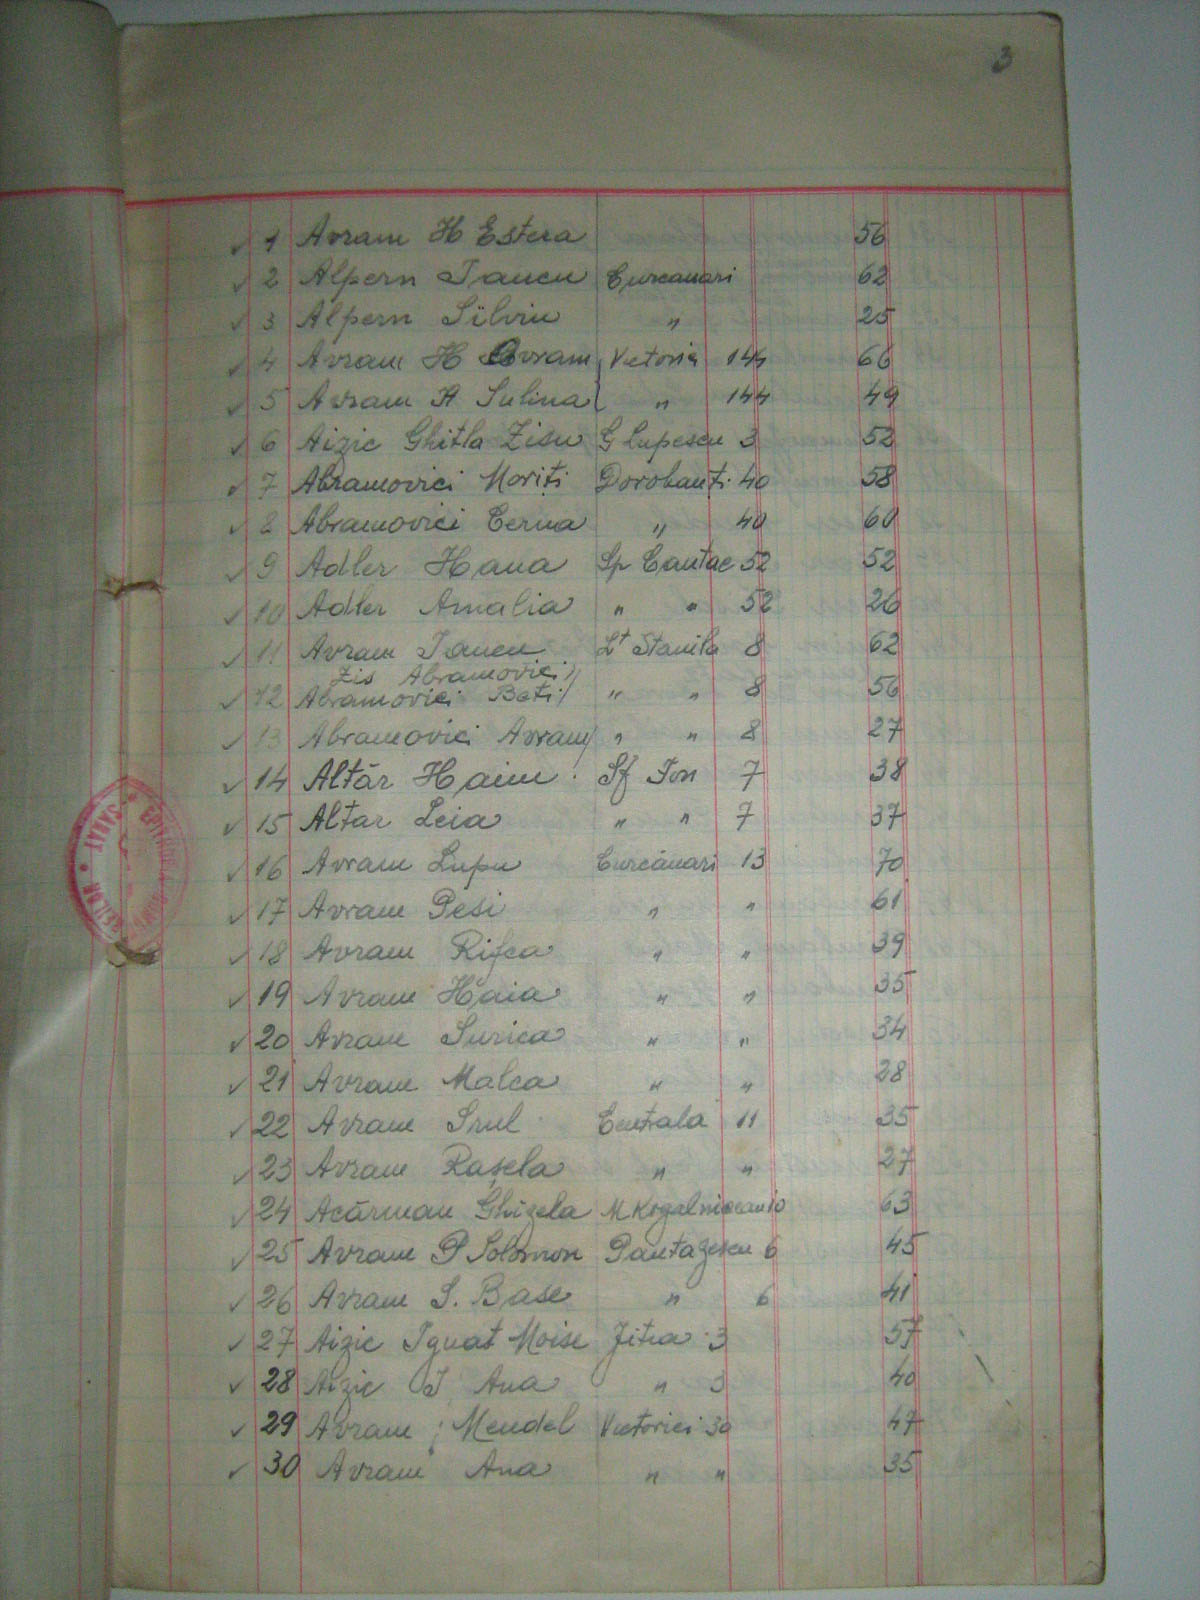 3
✓ 1 Avram H Estera 56
✓ 2 Alpern Iancu Curcanari 62
✓ 3 Alpern Silviu " 25
✓ 4 Avram H Avram Victoria 144 66
✓ 5 Avram A Sulina " 144 49
✓ 6 Aizic Ghitla Zisu G Lupescu 3 52
✓ 7 Abramovici Moriți Dorobanți 40 58
✓ 8 Abramovici Cerna " 40 60
✓ 9 Adler Hana Sp Cantac 52 52
✓ 10 Adler Amalia " " 52 26
✓ 11 Avram Iancu Lt Stanila 8 62
Zis Abramovici
✓ 12 Abramovici Beti " " 8 56
✓ 13 Abramovici Avram " " 8 27
✓ 14 Altăr Haim Sf Ion 7 38
✓ 15 Altar Leia " " 7 37
✓ 16 Avram Lupu Curcănari 13 70
✓ 17 Avram Pesi " " 61
✓ 18 Avram Rifca " " 39
✓ 19 Avram Haia " " 35
✓ 20 Avram Surica " " 34
✓ 21 Avram Malca " " 28
✓ 22 Avram Srul Centrala 11 35
✓ 23 Avram Rașela " " 27
✓ 24 Acărman Ghizela M Kogalniceanu 10 63
✓ 25 Avram P Solomon Pantazescu 6 45
✓ 26 Avram S. Base " 6 41
✓ 27 Aizic Ignat Moise Jitia 3 57
✓ 28 Aizic I Ana " 3 40
✓ 29 Avram Mendel Victoriei 30 47
✓ 30 Avram Ana " " 35
SARAT